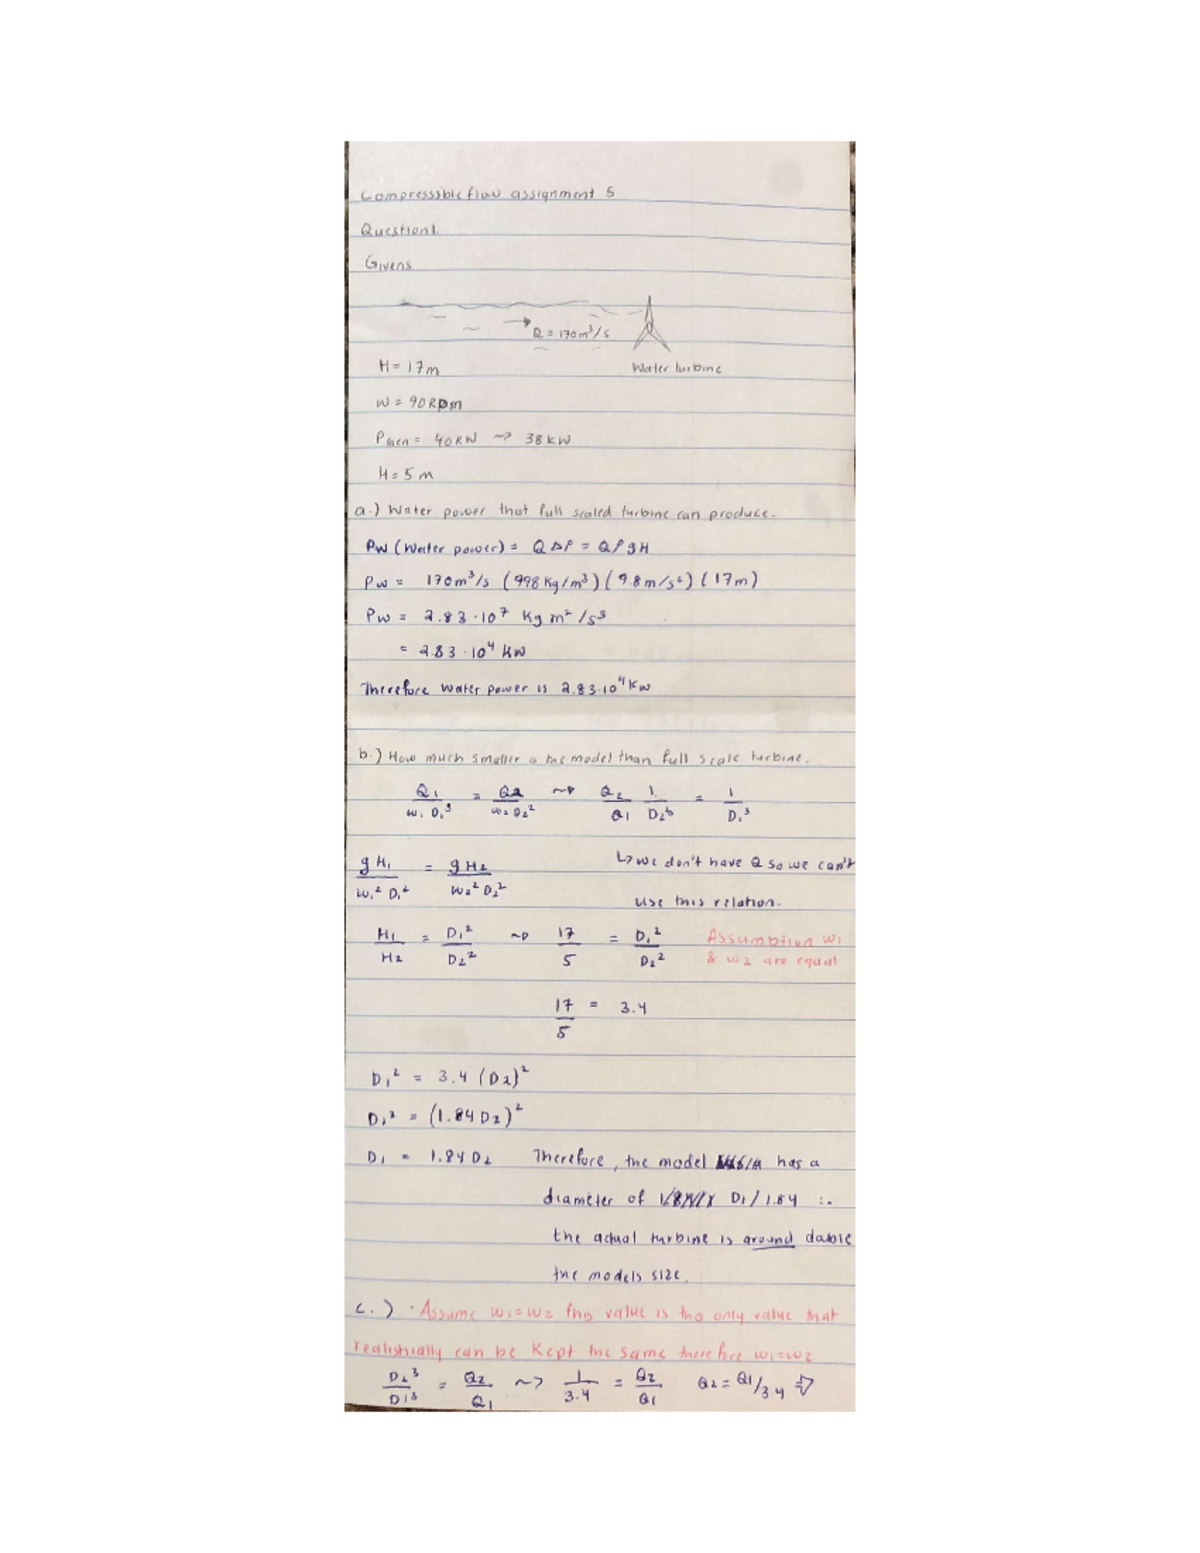 Compresssible flow assignment 5
Question 1.
Givens
Q = 170 m³/s
H = 17m
Water turbine
W = 90 RPm
= 40KW ~> 38 kW
H = 5 m
a.) Water power that full scaled turbine can produce.
Pw (Water power) = Q ΔP = Q ρ g H
Pw = 170 m³/s (998 Kg/m³) (9.8 m/s²) (17m)
Pw = 2.83 · 10⁷ Kg m² /s³
= 2.83 · 10⁴ KW
Therefore water power is 2.83·10⁴ KW
b.) How much smaller is the model than full scale turbine.
Q₁ / w₁ D₁³ = Q2 / w₂ D₂² ~> Q₂ / Q₁ 1 / D₂³ = 1 / D₁³
g H₁ / w₁² D₁² = g H₂ / w₂² D₂² ↳ we don't have Q so we can't
use this relation.
H₁ / H₂ = D₁² / D₂² ~> 17 / 5 = D₁² / D₂² Assumption w₁
& w₂ are equal
17 / 5 = 3.4
D₁² = 3.4 (D₂)²
D₁² = (1.84 D₂)²
D₁ = 1.84 D₂ Therefore, the model has a
diameter of D₁ / 1.84 :.
the actual turbine is around double
the models size.
c.) · Assume w₁=w₂ this value is the only value that
realistically can be kept the same therefore w₁=w₂
D₂³ / D₁³ = Q₂ / Q₁ ~> 1 / 3.4 = Q₂ / Q₁ Q₂ = Q₁/3.4 ⇒